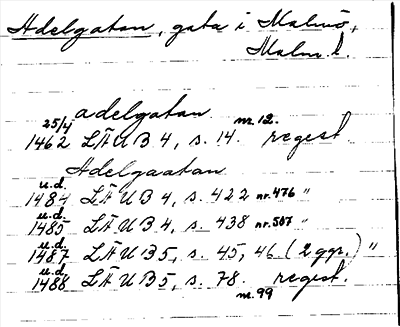 Adelgatan, gata i Malmö,
Malm. l.
adelgatan
25/4 1462 LÄUB4, s. 14. nr. 12. regest
Adelgaatan
u.d. 1484 LÄUB4, s. 422 nr. 476 "
u.d. 1485 LÄUB4, s. 438 nr. 507 "
u.d. 1487 LÄUB5, s. 45, 46 (2 ggr.) "
u.d. 1488 LÄUB5, s. 78. nr. 99 regest.